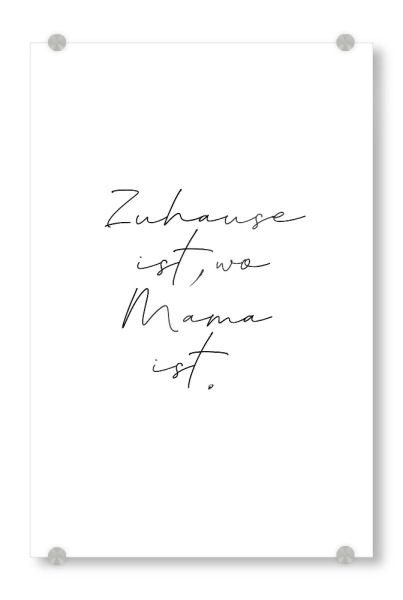 Zuhause
ist, wo
Mama
ist.